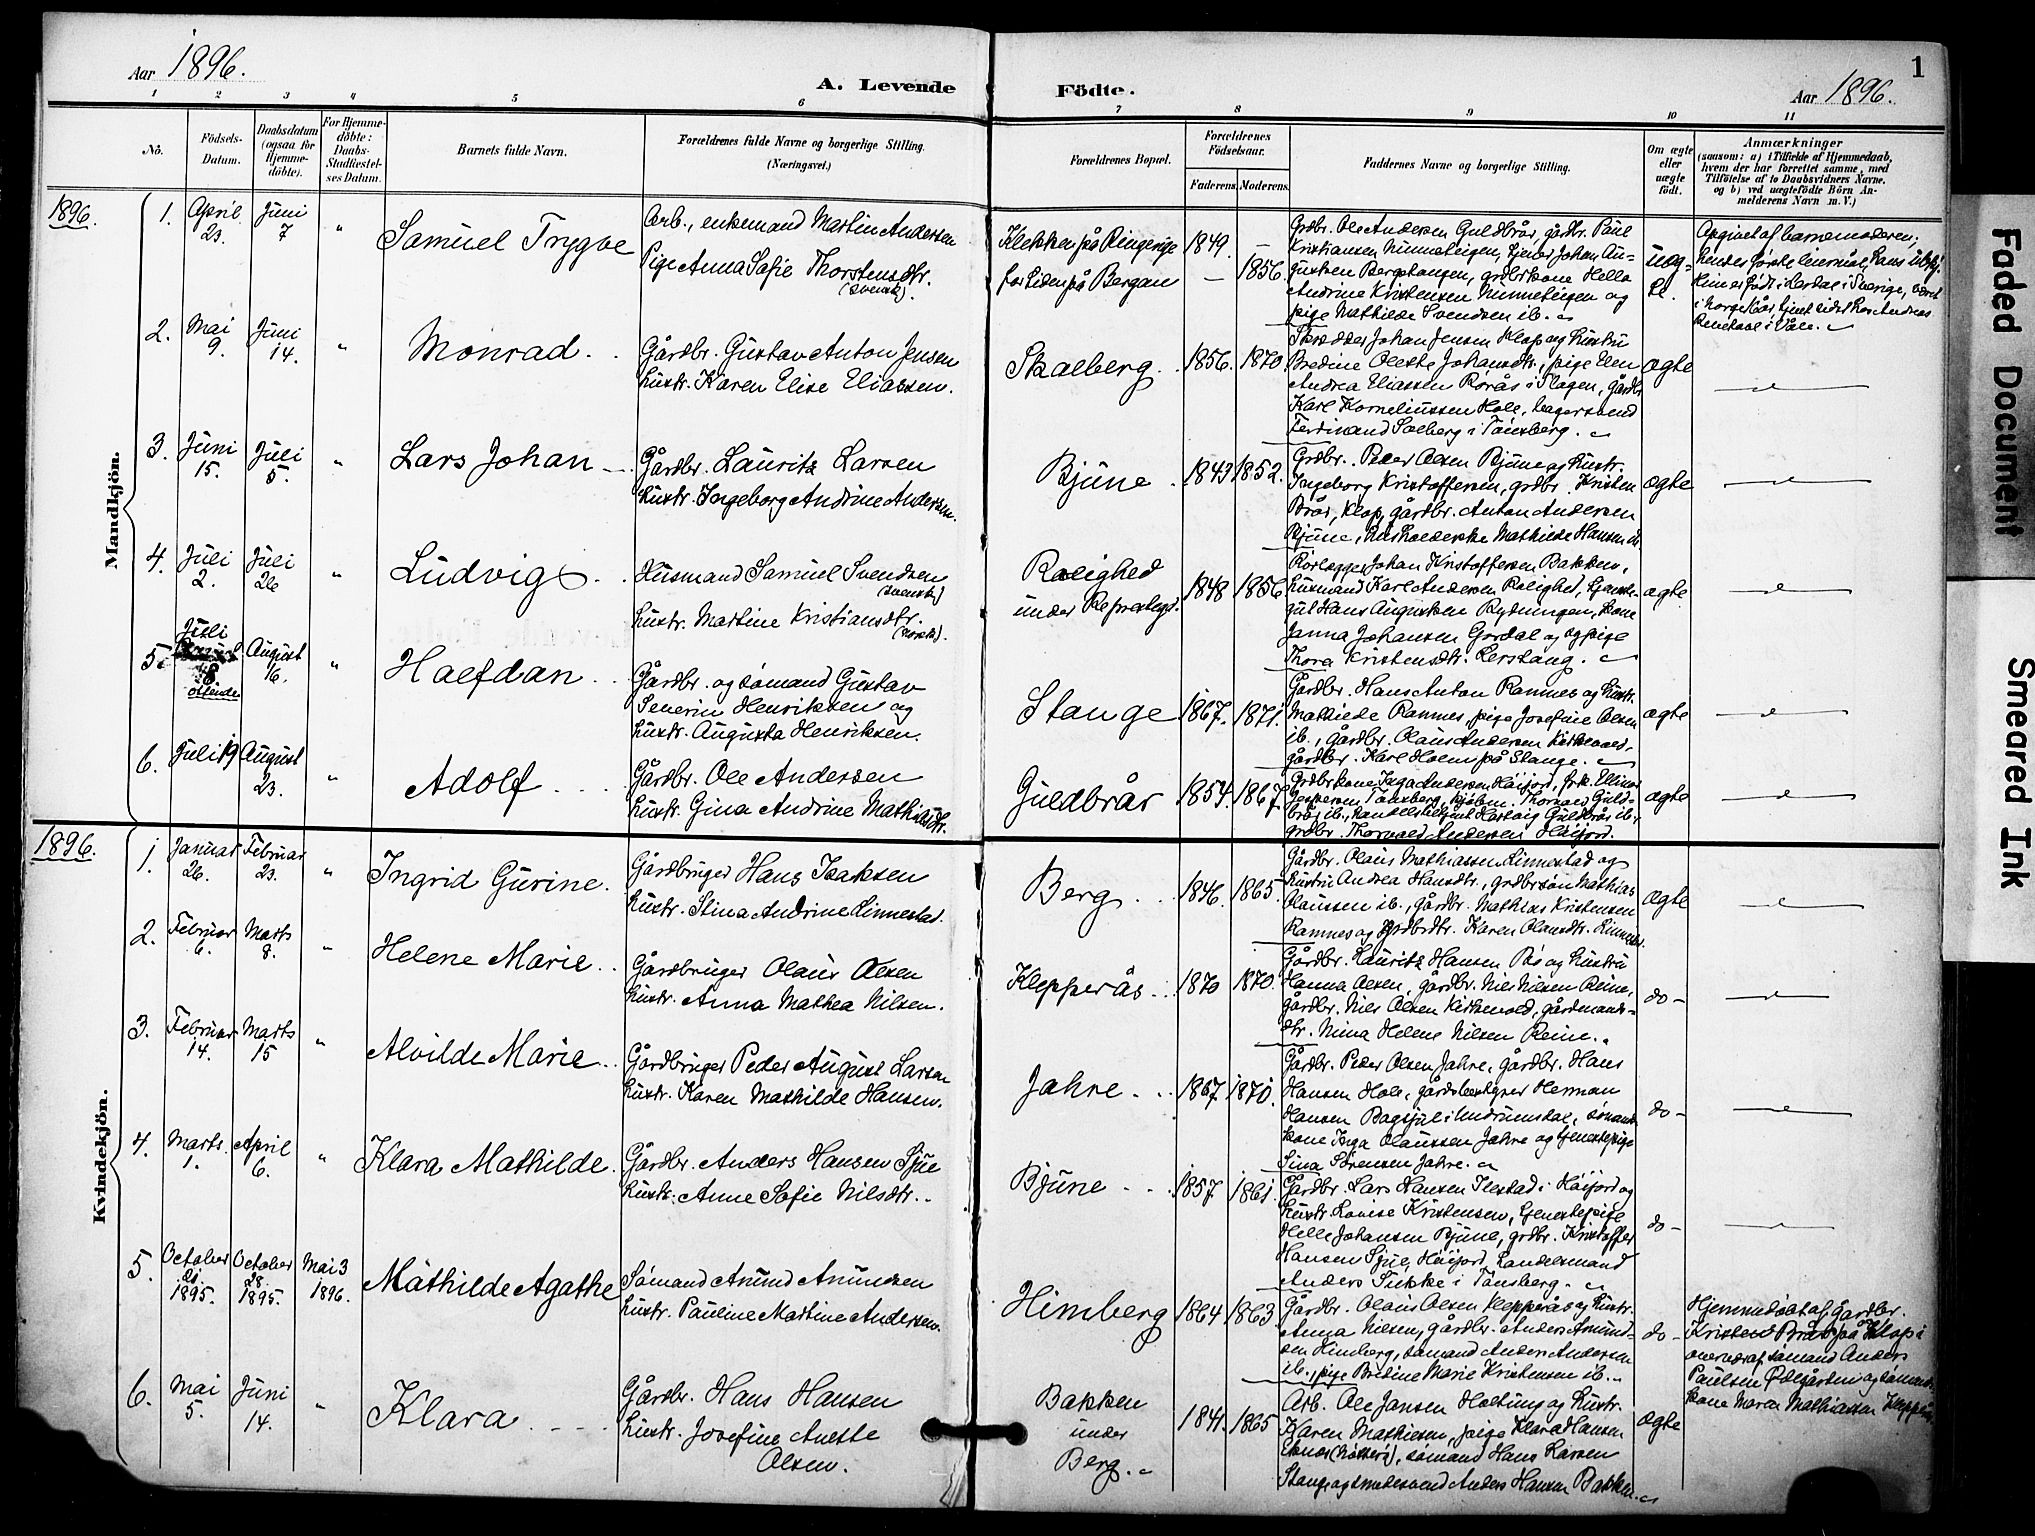 Aar 1896.
A. Levende
Födte.
Aar 1896.
1
1 2 3 4 5 6 7 8 9 10 11
No.
Födsels-
Datum.
Daabsdatum
(ogsaa for
Hjemme-
döbte).
For Hjemme-
döbte:
Daabs-
Stadfæstel-
ses Datum.
Barnets fulde Navn.
Forældrenes fulde Navne og borgerlige Stilling.
(Næringsvei.)
Forældrenes Bopæl.
Forældrenes
Födselsaar.
Faderens. Moderens.
Faddernes Navne og borgerlige Stilling.
Om ægte
eller
uægte
födt.
Anmærkninger
(saasom: a) i Tilfælde af Hjemmedaab,
hvem der har forrettet samme, med
Tilföielse af to Daabsvidners Navne,
og b) ved uægtefödte Börn An-
melderens Navn m. V.)
Mandkjön.
1896.
1. April 23. Juni 7 " Samuel Trygve
Arb., enkemand Martin Andersen
Pige Anna Sofie Thorstensdtr.
(svensk).
Klekken på Ringerige 1849. –
for tiden på Bergan – 1856.
Grdbr. Ole Andersen Guldbrår, grdbr. Paul
Kristiansen Nimneteigen, tjener Johan Au-
gustsen Bergstangen, grdbrkone Helle
Andrine Kristensen Nimneteigen og
pige Mathilde Svendsen ib.
uæg-
te.
Opgivet af barnemoderen;
2. Mai 9. Juni 14. " Monrad
Gårdbr. Gustav Anton Jensen
hustr. Karen Elise Eliassen.
Skalberg 1856. 1870.
Skrædder Johan Jensen Klop og hustru
Bredine Oleste Johansdtr., pige Elen
Andrea Eliassen Rörås i Slagen, gårdbr.
Karl Korneliussen Hole, bagersvend
Ferdinand Solberg i Tönsberg.
ægte
3. Juni 15. Juli 5. " Lars Johan
Gårdbr. Lauritz Larsen
hustr. Ingeborg Andrine Andersen.
Bjune 1843 1852.
Grdbr. Peder Olsen Bjune og hustr.
Ingeborg Kristoffersen, grdbr. Kristen
Brår, Klop, gårdbr. Anton Andersen
Bjune, husholderske Mathilde Hansen ib.
ægte
4. Juli 2. Juli 26 " Ludvig
Husmand Samuel Svendsen
(svensk)
hustr. Martine Kristiansdtr.
(norsk).
Rolighed
under
1848 1856.
Rörlægger Johan Kristoffersen Bakken,
husmand Karl Andersen Rolighed, tjeneste-
gut Hans Augustsen Rydningen, kone
Janna Johansen Gordal og pige
Thora Kristensdtr. Lerstang.
ægte
5. Juli 8 August 16. " Halfdan
Gårdbr. og sömand Gustav
Severin Henriksen og
hustr. Augusta Henriksen.
Stange 1867. 1871.
Gårdbr. Hans Anton Ramnes og hustr.
Mathilde Ramnes, pige Josefine Olsen
ib., gårdbr. Olaus Andersen Kirkevold,
gårdbr. Karl Holm på Stange.
ægte
6. Juli 19 August 23. " Adolf
Gårdbr. Ole Andersen
hustr. Gina Andrine Mathiasdtr.
Guldbrår 1854. 1867.
Grdbrkone Inga Andersen Höijord, frk. Elline
Jespersen Tönsberg, kjöbm. Thorvald Guld-
brår ib., handelsbetjent Hartvig Guldbrår ib.,
grdbr. Thorvald Andersen Höijord.
ægte
Kvindekjön.
1896.
1. Januar 26. Februar 23. " Ingrid Gurine.
Gårdbruger Hans Isaksen
hustr. Stina Andrine Linnestad.
Berg 1846. 1865.
Gårdbr. Olaus Mathiassen Linnestad og
hustru Andrea Hansdtr., grdbrsön Mathias
Olaussen ib., gårdbr. Mathias Kristensen
Ramnes og grdbrdtr. Karen Olausdtr. Linnestad.
Ægte
2. Februar 6. Marts 8. " Helene Marie
Gårdbruger Olaus Olsen
hustr. Anna Mathea Nilsen.
Klepperås 1870 1870.
Gårdbr. Lauritz Hansen Bö og hustru
Hanna Olsen, gårdbr. Nils Nilsen Reine,
gårdbr. Nils Olsen Kirkevold, gårdmands-
dtr. Nina Helene Nilsen Reine.
do –
3. Februar 14. Marts 15 " Alvilde Marie
Gårdbruger Peder August Larsen
hustr. Karen Mathilde Hansen.
Jahre 1867. 1870.
Gårdbr. Peder Olsen Jahre, gårdbr. Hans
Hansen Hole, gårdsbestyrer Herman
Hansen Bagsjul i Undrumsdal, sömands-
kone Inga Olaussen Jahre og tjenestepige
Sina Sörensen Jahre.
do –
4. Marts 1. April 6. " Klara Mathilde.
Gårdbr. Anders Hansen Sjue
hustr. Anne Sofie Nilsdtr.
Bjune 1857. 1861.
Gårdbr. Lars Hansen Ilestad i Höijord og
hustr. Lovise Kristensen, tjenestepige
Helle Johansen Bjune, grdbr. Kristoffer
Hansen Sjue, Höijord, handelsmand
Anders Sukke i Tönsberg.
do –
5. October 21. 1895. October 28. 1895. Mai 3 1896. Mathilde Agathe
Sömand Amund Amundsen
hustr. Pauline Martine Andersen.
Himberg 1864 1863.
Gårdbr. Olaus Olsen Klepperås og hustr.
Anna Nilsen, gårdbr. Anders Amund-
sen Himberg, sömand Anders Andersen
ib., pige Bredine Marie Kristensen ib.
do –
Hjemmedöbt af gårdbr.
Kristen Brår på Klop i
overvær af sömand Anders
Paulsen Ödegården og sömands-
kone Maren Mathiassen Klepperås
6. Mai 5. Juni 14. " Klara
Gårdbr. Hans Hansen
hustr. Josefine Anette
Olsen.
Bakken
under
Berg.
1841. 1865
Arb. Ole Jansen Holtung og hustr.
Karen Mathiesen, pige Klara Hansen
sömand Hans Larsen
Stange og smedesvend Anders Hansen Bakken.
Ægte
Faded Document
Smeared Ink